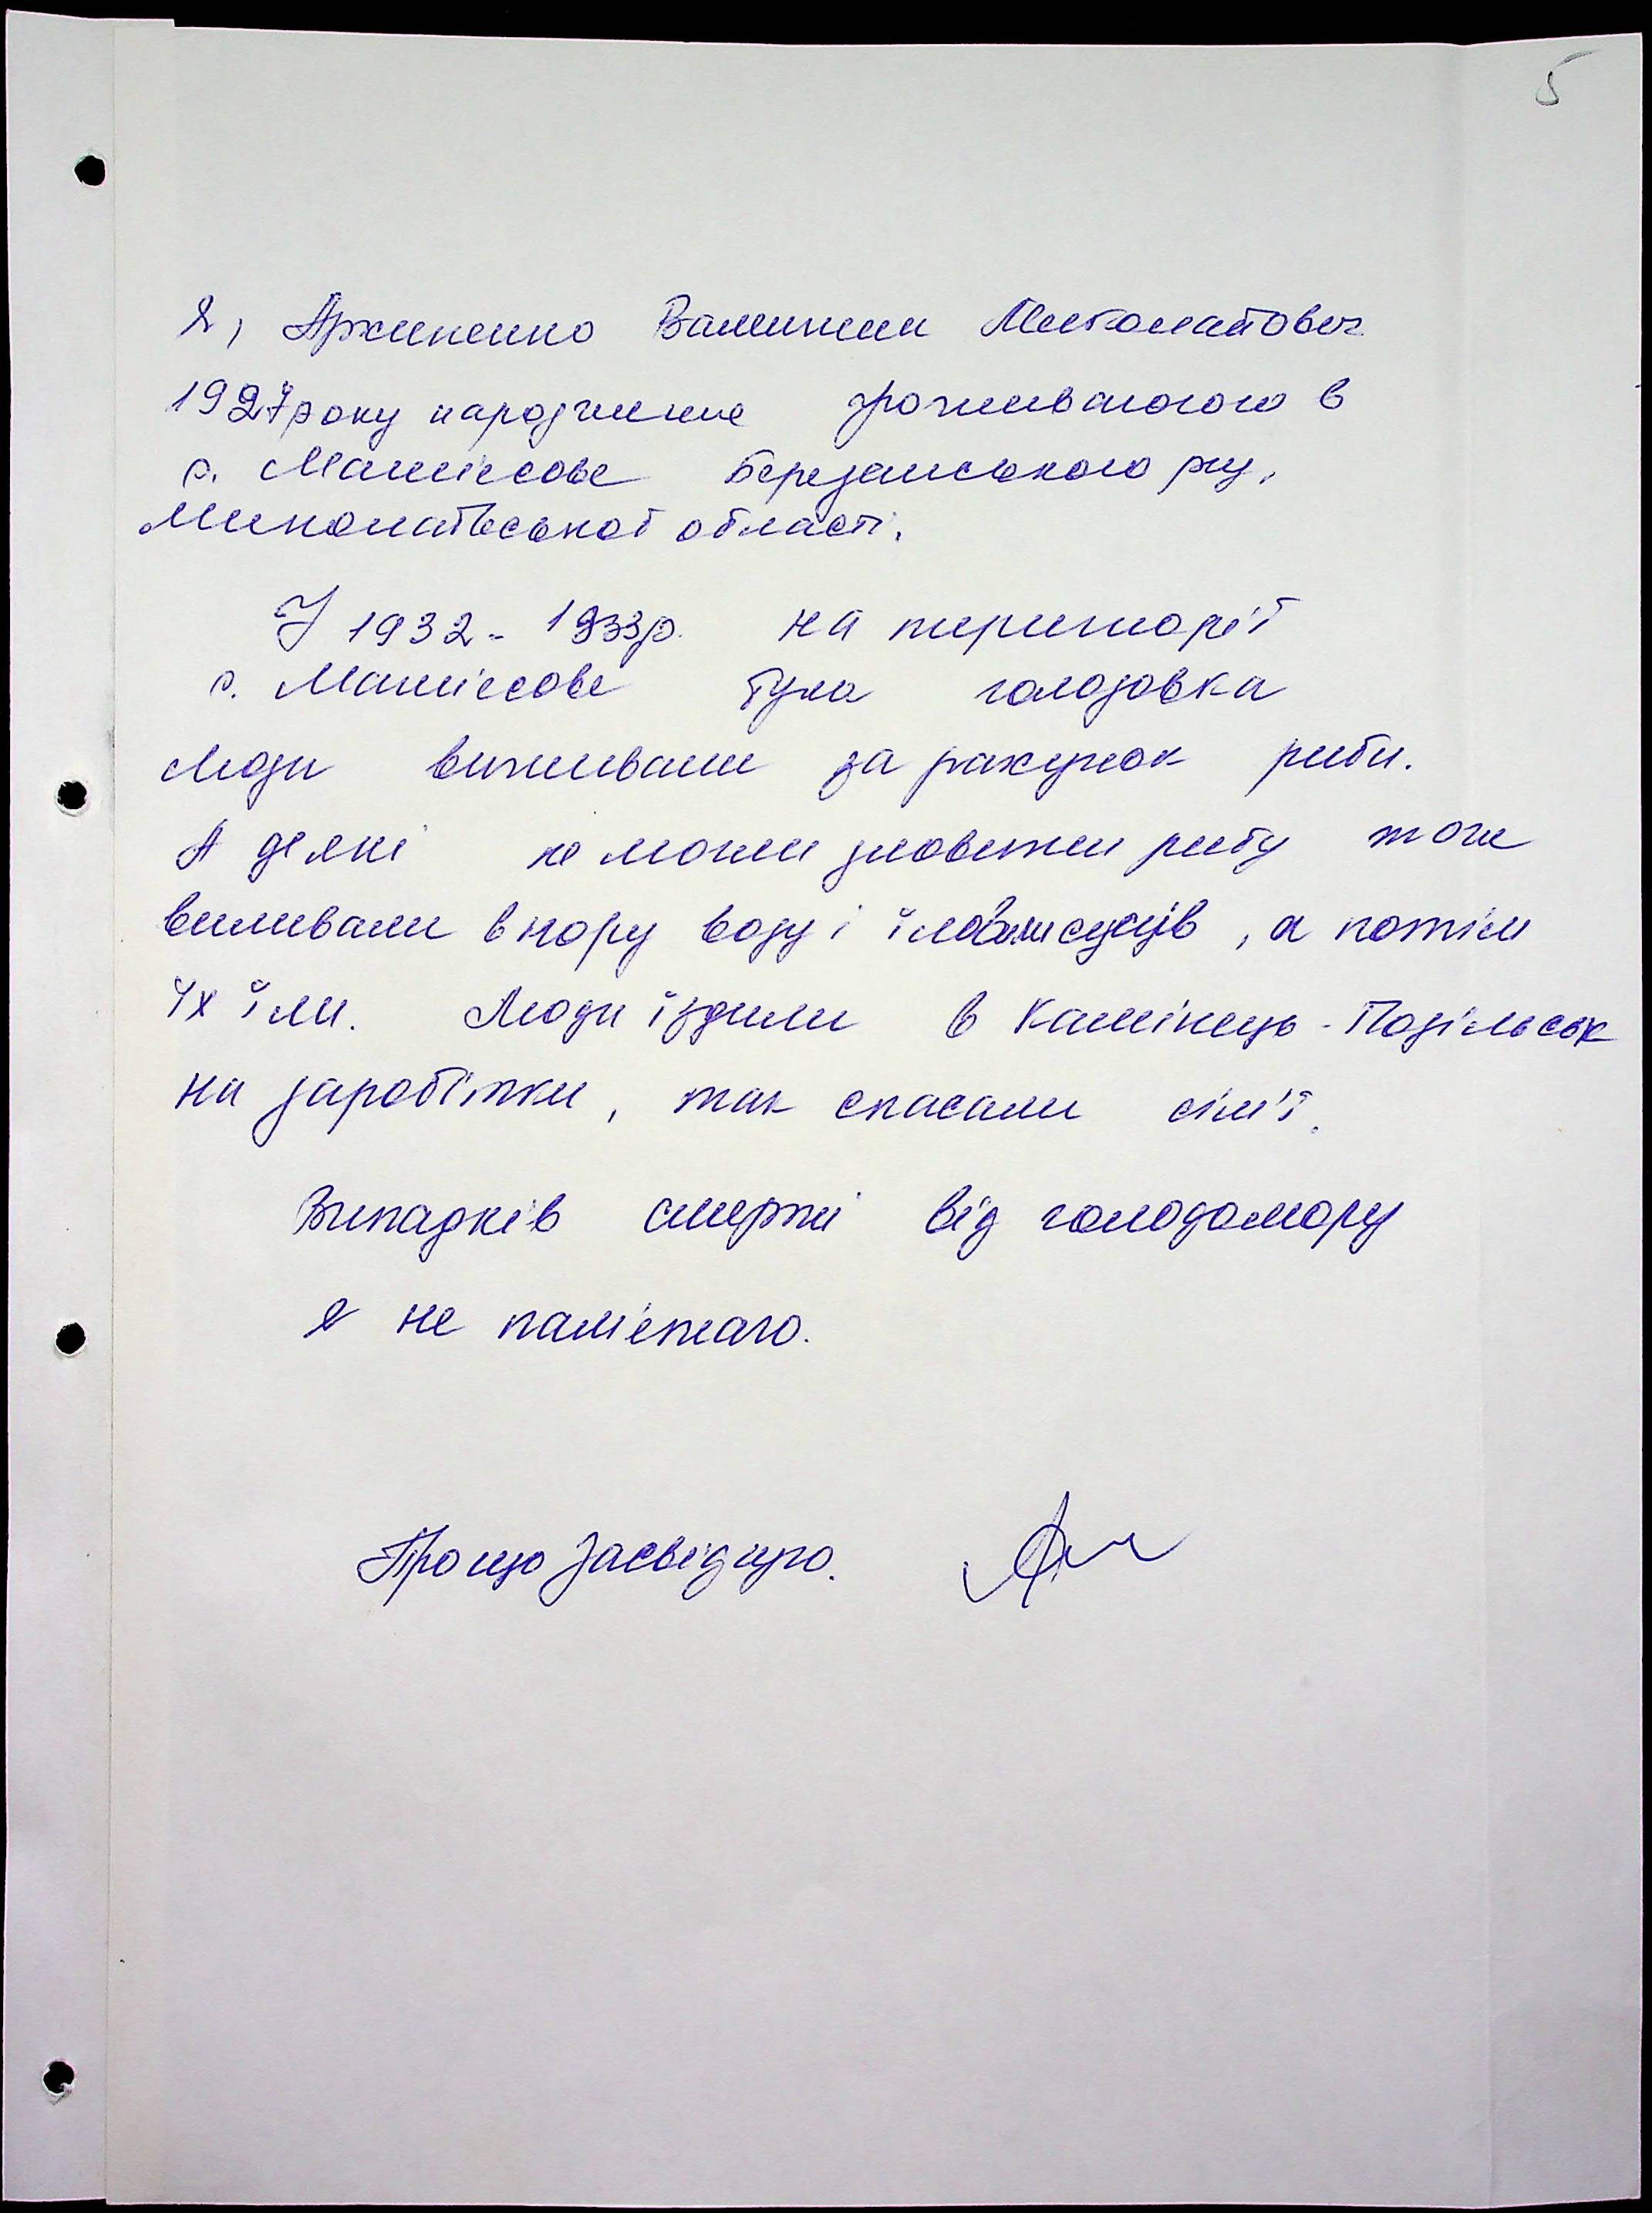 5
Я, Архипенко Валентин Миколайович
1927 року народження проживаючого в
с. Матіясове Березанського р-у,
Миколаївської області.
У 1932 - 1933р. на території
с. Матіясове була голодовка
Люди виживали за рахунок риби.
А деякі не могли зловити рибу то ги
виливали в нору воду і ловили сусців, а потім
їх їли. Люди їздили в Камінець - Подільськ
на заробітки, так спасали сім'ї.
Випадків смерті від голодомору
я не пам'ятаю.
Про що засвідчую.